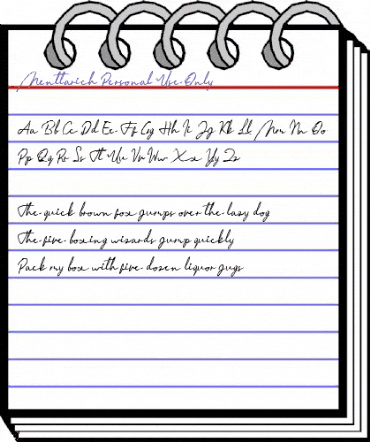 Menttarich Personal Use Only
Aa Bb Cc Dd Ee Ff Gg Hh Ii Jj Kk Ll Mm Nn Oo
Pp Qq Rr Ss Tt Uu Vv Ww Xx Yy Zz
The quick brown fox jumps over the lazy dog
The five boxing wizards jump quickly
Pack my box with five dozen liquor jugs